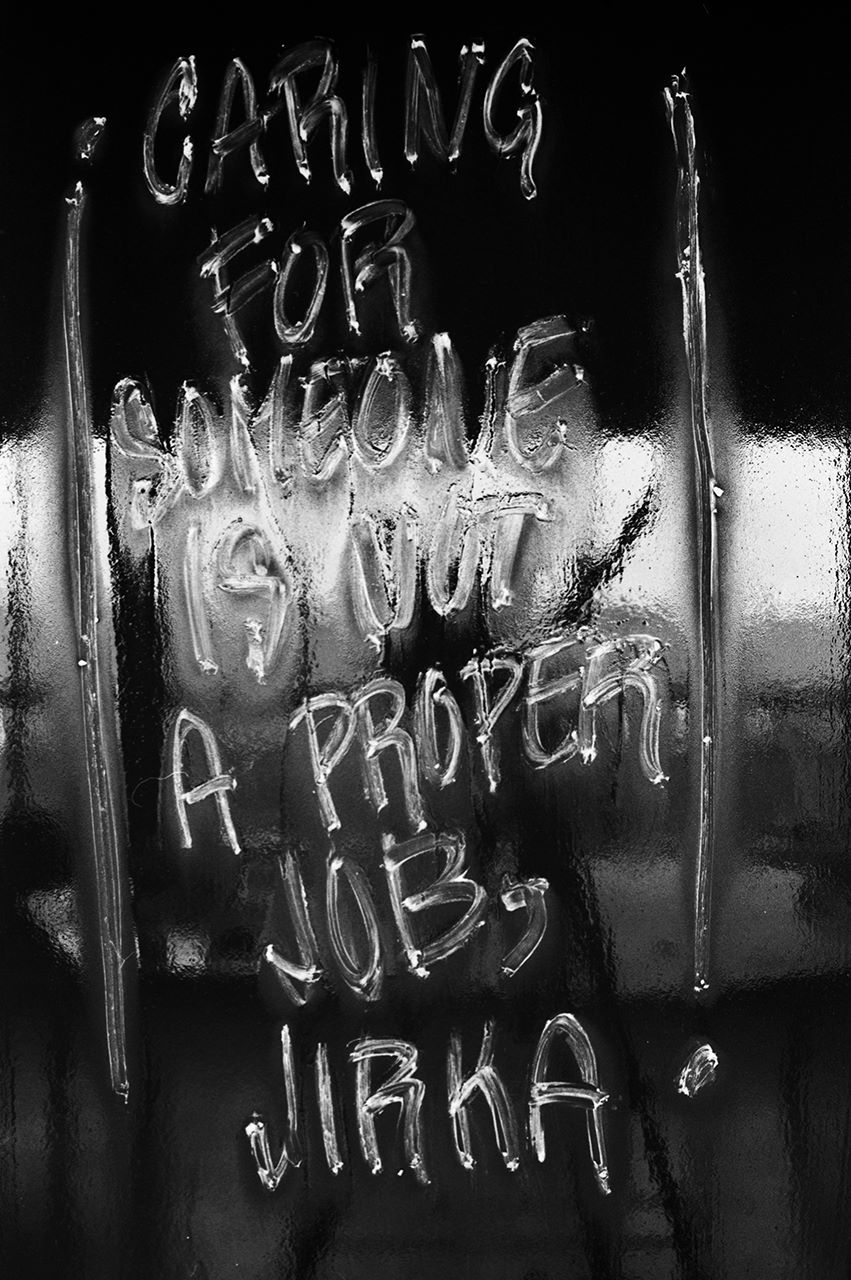 CARING
FOR
SOMEONE
IS NOT
A PROPER
JOB,
JIRKA